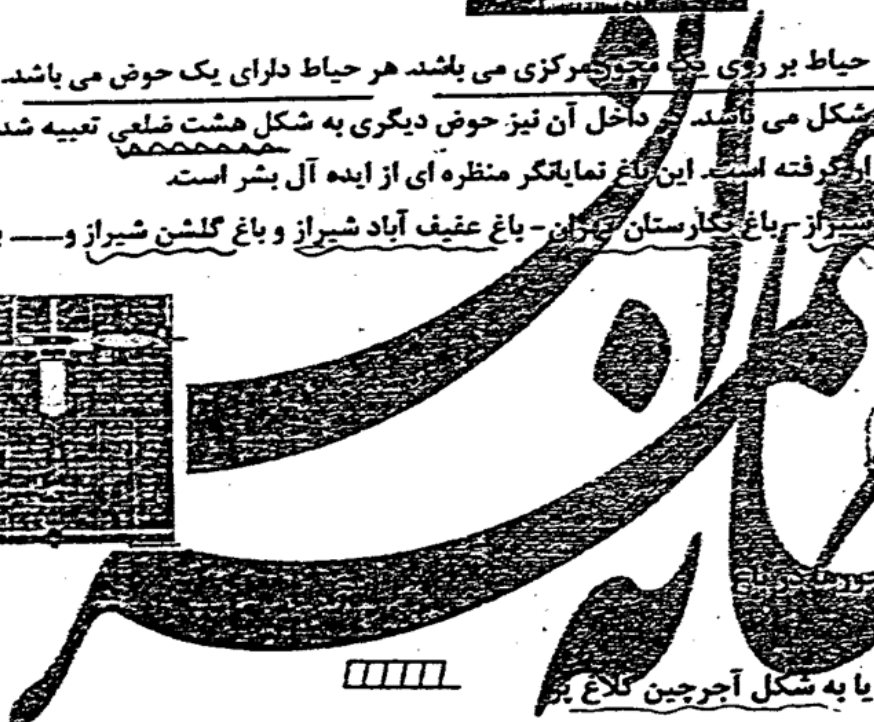 حیاط بر روی یک محور مرکزی می باشد. هر حیاط دارای یک حوض می باشد.
شکل می باشد. در داخل آن نیز حوض دیگری به شکل هشت ضلعی تعبیه شد
گرفته است. این باغ نمایانگر منظره ای از ایده آل بشر است.
شیراز - باغ نگارستان تهران - باغ عفیف آباد شیراز و باغ گلشن شیراز و
در باغ
یا به شکل آجرچین کلاغ پر